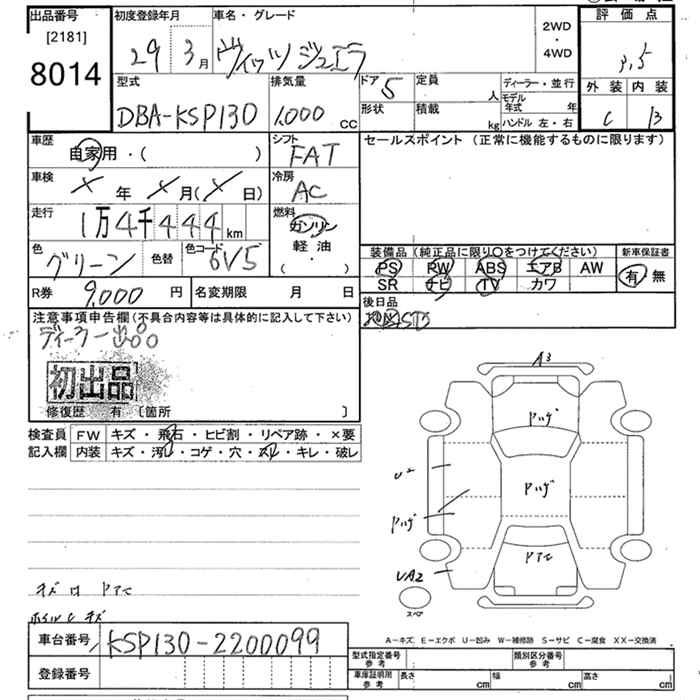 出品番号 初度登録年月 車名・グレード 2WD・4WD 評価点
[2181]
8014 29 3月 ヴィッツ ジュエラ 3.5
型式 排気量 ドア 5 定員 人 ディーラー・並行 外装 内装
DBA-KSP130 1,000 cc 形状 積載 kg モデル年式 年 ハンドル 左・右 C B
車歴 自家用・( ) シフト FAT セールスポイント (正常に機能するものに限ります)
車検 X年 X月(X日) 冷房 AC
走行 1万4千444km 燃料 ガソリン 軽油 ( ・ )
色 グリーン 色替 色コード 6V5 装備品 (純正品に限り○をつけてください) 新車保証書
PS PW ABS エアB AW 有 無
SR ナビ TV カワ
R券 9,000円 名変期限 月 日 後日品
注意事項申告欄 (不具合内容等は具体的に記入して下さい)
ディーラー出品
初出品
修復歴 有 [箇所 ]
検査員 FW キズ・飛石・ヒビ割・リペア跡・×要
記入欄 内装 キズ・汚れ・コゲ・穴・スレ・キレ・破レ
A3
U2
UA2
スペア
キズ
ホイルCキズ
A-キズ E-エクボ U-凹み W-補修跡 S-サビ C-腐食 XX-交換済
車台番号 KSP130-2200099
型式指定番号 参考 類別区分番号 参考
登録番号 車庫証明 参考 長さ cm 幅 cm 高さ cm